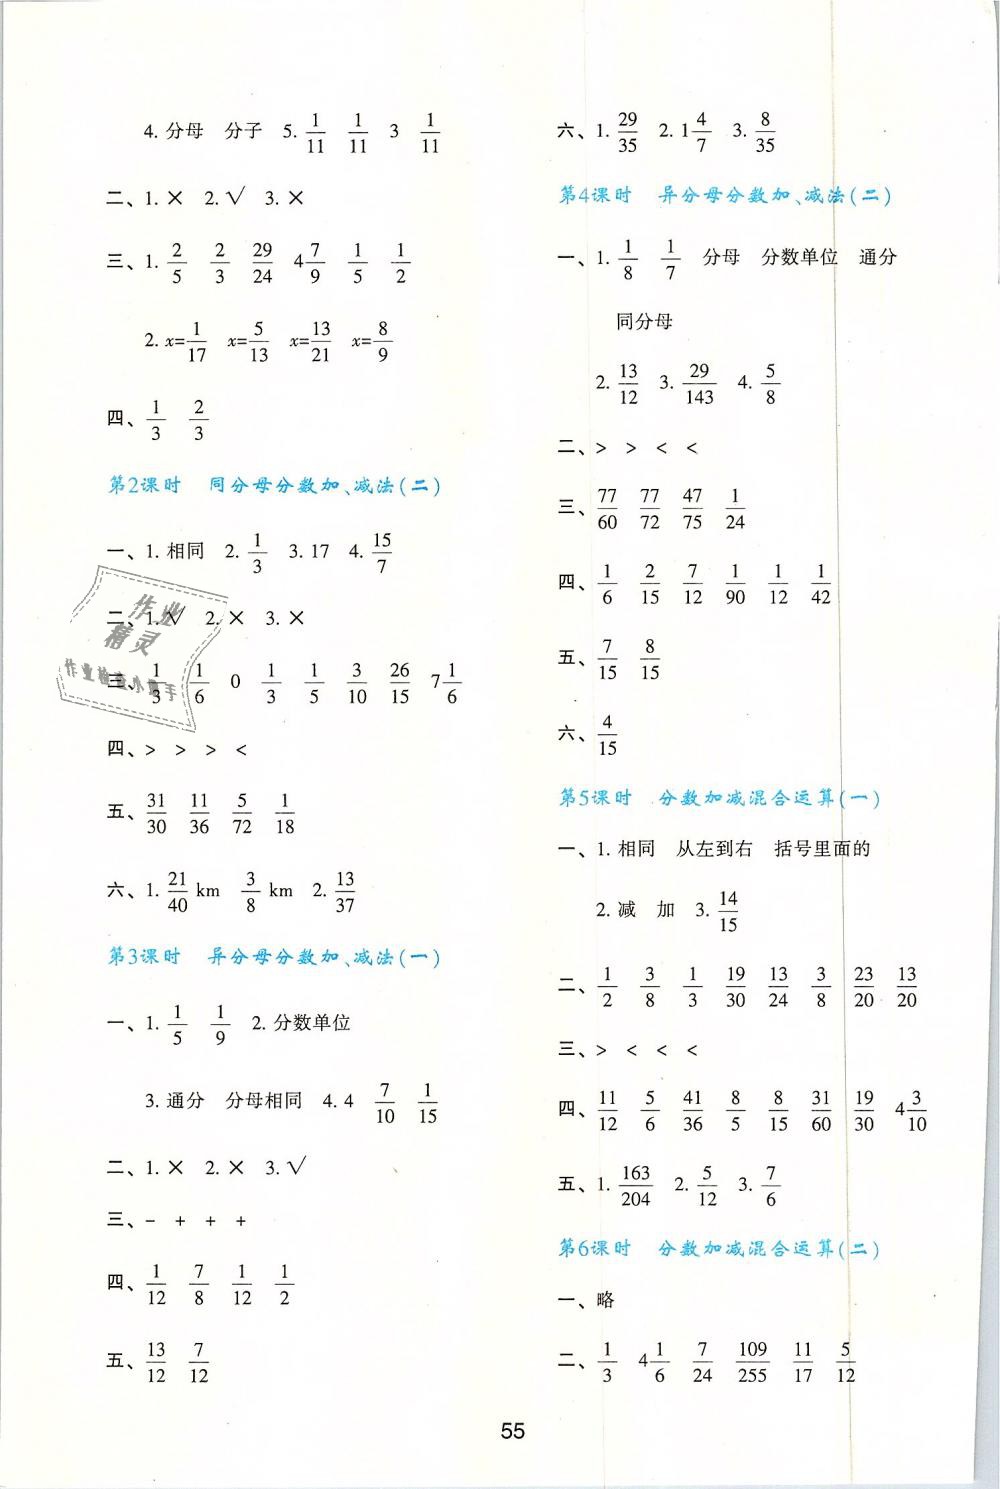 4. 分母 分子 5. 1/11 1/11 3 1/11
二、1. × 2. √ 3. ×
三、1. 2/5 2/3 29/24 4 7/9 1/5 1/2
2. x=1/17 x=5/13 x=13/21 x=8/9
四、1/3 2/3
第2课时 同分母分数加、减法(二)
一、1. 相同 2. 1/3 3. 17 4. 15/7
二、1. √ 2. × 3. ×
三、1/3 1/6 0 1/3 1/5 3/10 26/15 7 1/6
四、> > > <
五、31/30 11/36 5/72 1/18
六、1. 21/40 km 3/8 km 2. 13/37
第3课时 异分母分数加、减法(一)
一、1. 1/5 1/9 2. 分数单位
3. 通分 分母相同 4. 4 7/10 1/15
二、1. × 2. × 3. √
三、− + + +
四、1/12 7/8 1/12 1/2
五、13/12 7/12
作业
精灵
作业检查小助手
六、1. 29/35 2. 1 4/7 3. 8/35
第4课时 异分母分数加、减法(二)
一、1. 1/8 1/7 分母 分数单位 通分
同分母
2. 13/12 3. 29/143 4. 5/8
二、> > < <
三、77/60 77/72 47/75 1/24
四、1/6 2/15 7/12 1/90 1/12 1/42
五、7/15 8/15
六、4/15
第5课时 分数加减混合运算(一)
一、1. 相同 从左到右 括号里面的
2. 减 加 3. 14/15
二、1/2 3/8 1/3 19/30 13/24 3/8 23/20 13/20
三、> < < <
四、11/12 5/6 41/36 8/5 8/15 31/60 19/30 4 3/10
五、1. 163/204 2. 5/12 3. 7/6
第6课时 分数加减混合运算(二)
一、略
二、1/3 4 1/6 7/24 109/255 11/17 5/12
55